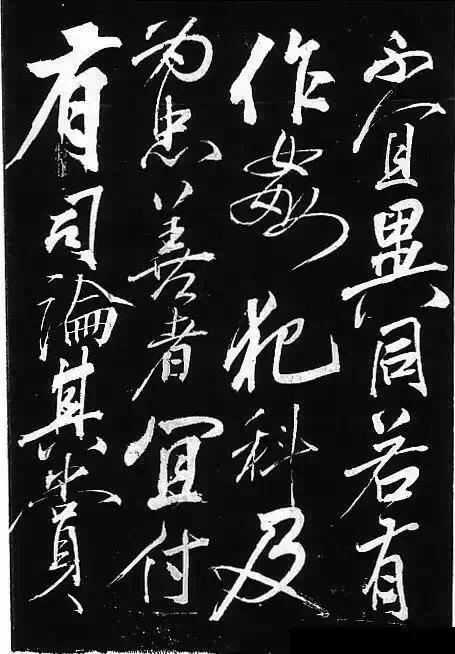 不宜異同若有
作姦犯科及
为忠善者宜付
有司論其賞